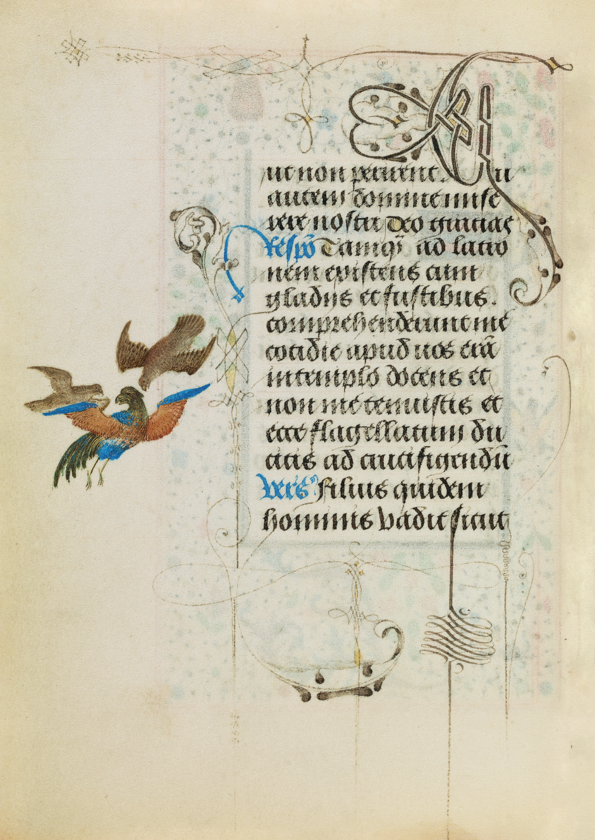 ut non pereunt. Tu
autem domine mise
rere nostri Deo gracias
Respō Tamq̄ȝ ad latro
nem existens cum
gladiis et fustibus.
comprehenderunt me
cotidie apud uos erā
in templo docens et
non me tenuistis et
ecce flagellatum du
citis ad crucifigendū
Vers° filius quidem
hominis vadit sicut